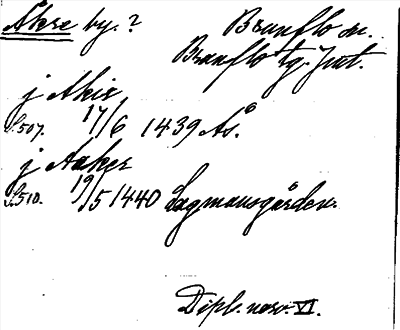 Åkre by. ? Brunflo sn.
Brunflo tg. Jmt.
j Akir
S.507. 17/6 1439 Ås.
j Aaker
S.510. 19/5 1440 Lagmansgården.
Dipl. norv. VI.